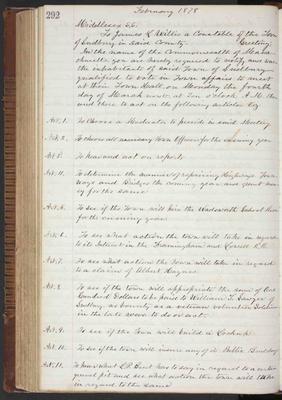 292
February 1878
Middlesex S.S.
To James L. Willis a Constable of the Town
of Sudbury in said County. Greeting:
In the name of the Commonwealth of Massa-
chusetts you are hereby required to notify and warn
the inhabitants of said Town of Sudbury
qualified to vote in Town affairs to meet
at their Town Hall, on Monday the fourth
day of March next at ten o'clock A.M. then
and there to act on the following articles viz
Art. 1. To Choose a Moderator to preside in said Meeting
Art. 2. To choose all necessary Town Officers for the ensuing year
Art. 3. To hear and act on reports
Art. 4. To determine the manner of repairing Highways Town
ways and Bridges the coming year and grant money
for the same
Art. 5. To see if the Town will hire the Wadsworth School House
for the ensuing year
Art. 6. To see what action the town will take in regard
to its interest in the Framingham and Lowell R.R.
Art. 7. To see what action the Town will take in regard
to a claim of Albert Haynes
Art. 8. To see if the town will appropriate the sum of One
Hundred Dollars to be paid to William T. Sawyer of
Sudbury, as bounty as a veteran volunteer Soldier
in the late
Art. 9. To see if the Town will build a Lockup
Art. 10. To see if the town will insure any of its Public Buildings
Art. 11. To hear what has to say in regard to a
gravel pit and see what action the town will take
in regard to the same